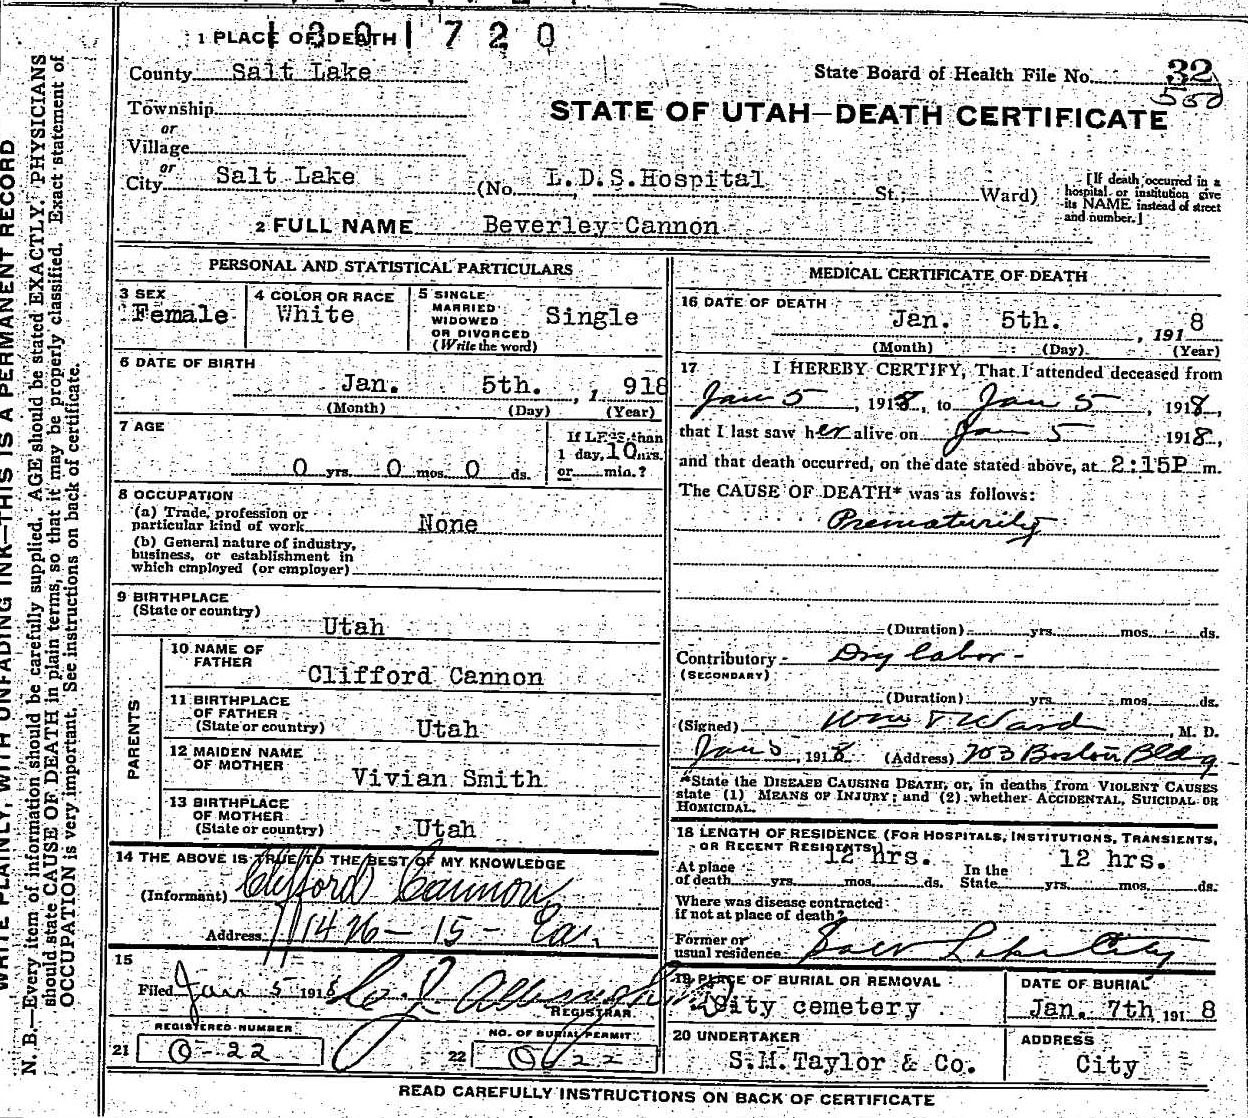 1 30 1 7 2 0
1 PLACE OF DEATH
County Salt Lake
State Board of Health File No. 32
Township
or
Village
or
City Salt Lake (No. L.D.S.Hospital St., Ward)
STATE OF UTAH—DEATH CERTIFICATE
[If death occurred in a
hospital or institution give
its NAME instead of street
and number.]
2 FULL NAME Beverley Cannon
PERSONAL AND STATISTICAL PARTICULARS
3 SEX
Female
4 COLOR OR RACE
White
5 SINGLE
MARRIED
WIDOWED
OR DIVORCED
(Write the word)
Single
6 DATE OF BIRTH
Jan. 5th. , 1 918
(Month) (Day) (Year)
7 AGE
0 yrs. 0 mos. 0 ds.
If LESS than
1 day, 10 hrs.
or min.?
8 OCCUPATION
(a) Trade, profession or
particular kind of work None
(b) General nature of industry,
business, or establishment in
which employed (or employer)
9 BIRTHPLACE
(State or country)
Utah
PARENTS
10 NAME OF
FATHER
Clifford Cannon
11 BIRTHPLACE
OF FATHER
(State or country) Utah
12 MAIDEN NAME
OF MOTHER
Vivian Smith
13 BIRTHPLACE
OF MOTHER
(State or country) Utah
14 THE ABOVE IS TRUE TO THE BEST OF MY KNOWLEDGE
(Informant) Clifford Cannon
Address 1426 - 15 - Ea.
15
Filed Jan 5 1918
REGISTRAR
REGISTERED NUMBER
21 0-22
NO. OF BURIAL PERMIT
22 022
MEDICAL CERTIFICATE OF DEATH
16 DATE OF DEATH
Jan. 5th. , 191 8
(Month) (Day) (Year)
17 I HEREBY CERTIFY, That I attended deceased from
Jan 5 , 1918, to Jan 5 , 1918,
that I last saw her alive on Jan 5 1918,
and that death occurred, on the date stated above, at 2:15P m.
The CAUSE OF DEATH* was as follows:
Prematurity
(Duration) yrs. mos. ds.
Contributory Dry labor -
(SECONDARY)
(Duration) yrs. mos. ds.
(Signed) Wm T Ward , M. D.
Jan 5, 1918 (Address) 703 Boston Bldg
*State the DISEASE CAUSING DEATH, or, in deaths from VIOLENT CAUSES
state (1) MEANS OF INJURY; and (2) whether ACCIDENTAL, SUICIDAL OR
HOMICIDAL.
18 LENGTH OF RESIDENCE (FOR HOSPITALS, INSTITUTIONS, TRANSIENTS,
OR RECENT RESIDENTS)
12 hrs. 12 hrs.
At place
of death yrs. mos. ds.
In the
State yrs. mos. ds.
Where was disease contracted
if not at place of death?
Former or
usual residence Salt Lake City
19 PLACE OF BURIAL OR REMOVAL
City cemetery
DATE OF BURIAL
Jan. 7th, 191 8
20 UNDERTAKER
S.M.Taylor & Co.
ADDRESS
City
READ CAREFULLY INSTRUCTIONS ON BACK OF CERTIFICATE
WRITE PLAINLY, WITH UNFADING INK—THIS IS A PERMANENT RECORD
N. B.—Every item of information should be carefully supplied. AGE should be stated EXACTLY. PHYSICIANS
should state CAUSE OF DEATH in plain terms, so that it may be properly classified. Exact statement of
OCCUPATION is very important. See instructions on back of certificate.